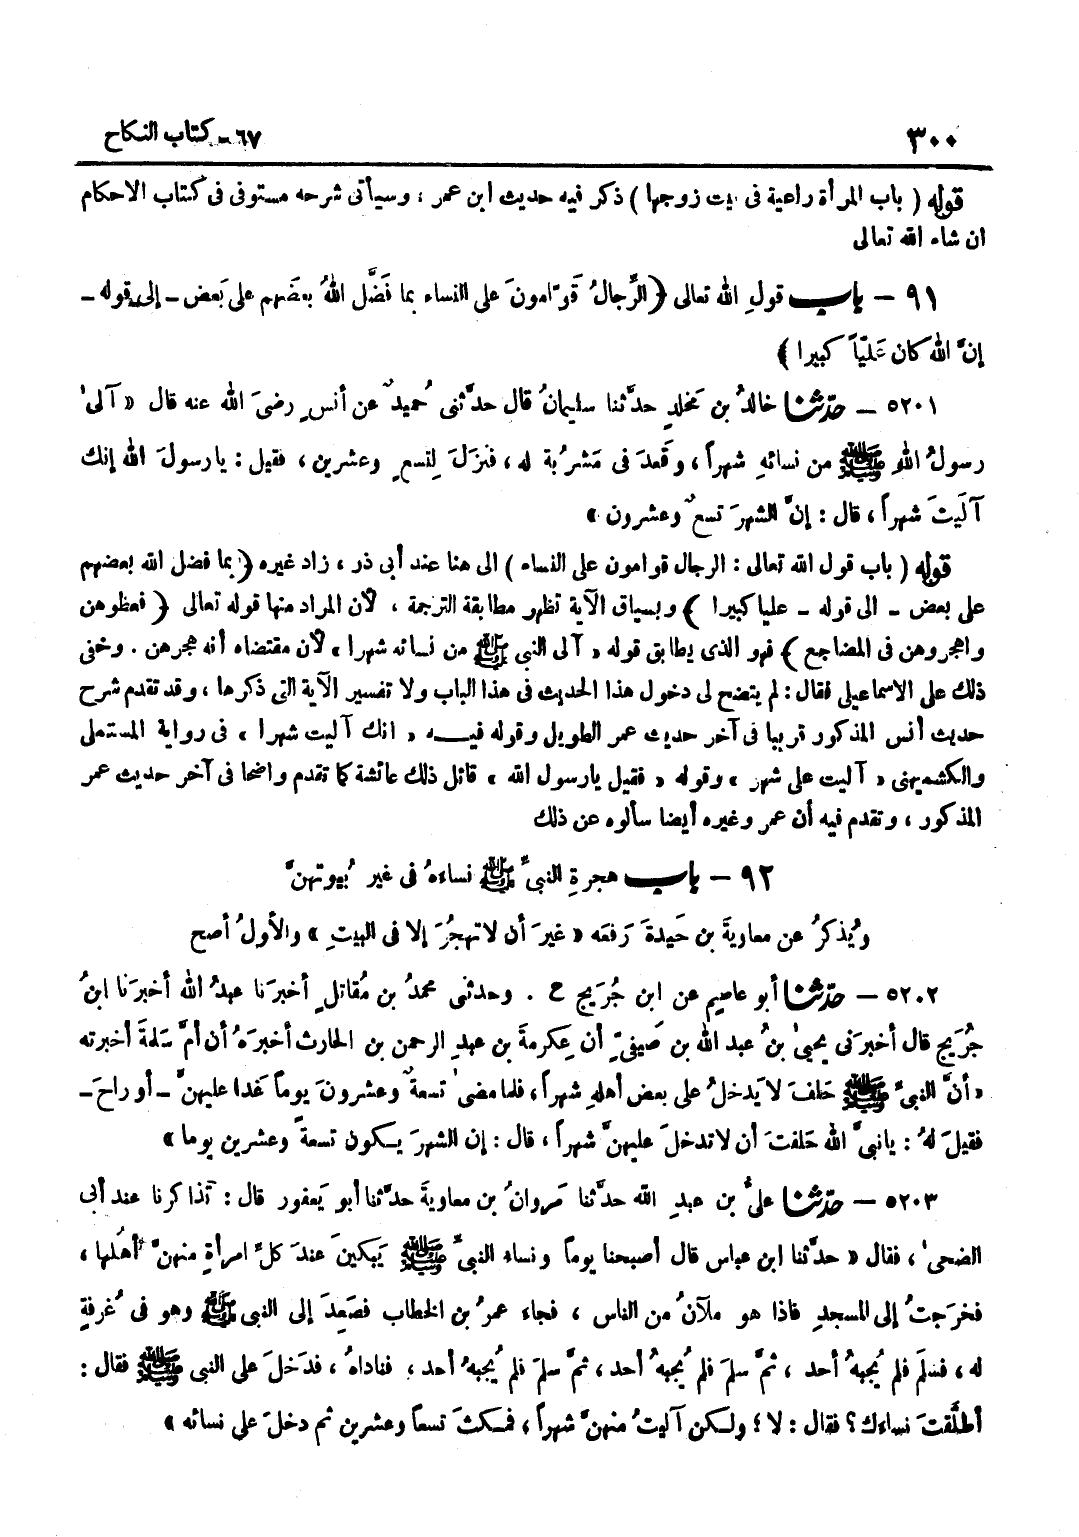 ٣٠٠
٦٧ - كتاب النكاح
قوله ( باب المرأة راعية فى بيت زوجها ) ذكر فيه حديث ابن عمر ، وسيأتى شرحه مستوفى فى كتاب الاحكام
ان شاء الله تعالى
٩١ - باب قولِ الله تعالى ﴿ الرِّجالُ قَوّامونَ على النساء بما فَضَّل اللهُ بعضَهم على بَعض - إلى قوله -
إنَّ الله كان عَليّاً كبيرا ﴾
٥٢٠١ - حدّثنا خالدُ بن مَخلدٍ حدَّثنا سليمانُ قال حدَّثنى حُميدٌ عن أنسٍ رضىَ الله عنه قال « آلىٰ
رسولُ اللهِ ﷺ من نسائهِ شهراً ، وقَعدَ فى مَشرُبة له ، فنزلَ لِتسعٍ وعشرين ، فقيل : يارسولَ الله إنك
آلَيتَ شهراً ، قال : إنَّ الشهرَ تسعٌ وعشرون »
قوله ( باب قول الله تعالى : الرجال قوامون على النساء ) الى هنا عند أبى ذر ، زاد غيره ﴿ بما فضل الله بعضهم
على بعض - الى قوله - عليا كبيرا ﴾ وبسياق الآية تظهر مطابقة الترجمة ، لأن المراد منها قوله تعالى ﴿ فعظوهن
واهجروهن فى المضاجع ﴾ فهو الذى يطابق قوله « آلى النبى ﷺ من نسائه شهرا » لأن مقتضاه أنه هجرهن . وخفى
ذلك على الاسماعيلى فقال : لم يتضح لى دخول هذا الحديث فى هذا الباب ولا تفسير الآية التى ذكرها ، وقد تقدم شرح
حديث أنس المذكور قريبا فى آخر حديث عمر الطويل وقوله فيـــه « انك آليت شهرا » فى رواية المستملى
والكشميهنى « آليت على شهر » وقوله « فقيل يارسول الله » قائل ذلك عائشة كما تقدم واضحا فى آخر حديث عمر
المذكور ، وتقدم فيه أن عمر وغيره أيضا سألوه عن ذلك
٩٢ - باب هجرةِ النبىِّ ﷺ نساءهُ فى غير بُيوتهنَّ
ويُذكرُ عن معاويةَ بن حَيدةَ رَفعَه « غيرَ أن لاتهجُرَ إلا فى البيتِ » والأولُ أصح
٥٢٠٢ - حدّثنا أبو عاصيم عن ابن جُرَيج ح . وحدثنى محمدُ بن مُقاتلٍ أخبرَنا عبدُ الله أخبرَنا ابنُ
جُرَيج قال أخبرَنى يحيىٰ بنُ عبد الله بن صَيفىّ أن عِكرمةَ بن عبدِ الرحمن بن الحارث أخبرَهُ أن أمَّ سَلمةَ أخبرته
« أنَّ النبىَّ ﷺ حَلفَ لا يَدخلُ على بعض أهلهِ شهراً ، فلما مضىٰ تسعةٌ وعشرونَ يوماً غَدا عليهنَّ - أو راحَ -
فقيلَ لهُ : يانبىَّ الله حَلفتَ أن لاتدخلَ عليهنَّ شهراً ، قال : إن الشهرَ يـكون تسعةً وعشرين يوما »
٥٢٠٣ - حدّثنا علىُّ بن عبدِ الله حدَّثنا مَروانُ بن معاويةَ حدَّثنا أبو يَعفور قال : تَذاكرنا عند أبى
الضحىٰ ، فقال « حدَّثنا ابن عباس قال أصبحنا يوماً ونساء النبىِّ ﷺ يَبكينَ عندَ كلِّ امرأةٍ منهنَّ أهلُها ،
فخرَجتُ إلى المسجدِ فاذا هو ملآنُ من الناس ، فجاء عمرُ بن الخطاب فصَعِدَ إلى النبى ﷺ وهو فى غُرفةٍ
له ، فسَلّم فلم يُجبهُ أحد ، ثمَّ سلمَ فلم يُجبهُ أحد ، ثمَّ سلمَ فلم يُجبهُ أحد ، فناداهُ ، فدَخلَ على النبى ﷺ فقال :
أطلَّقتَ نساءك؟ فقال : لا ؛ ولـكن آليتُ منهنَّ شهراً ، فمـكثَ تسعاً وعشرين ثم دخلَ على نسائه »